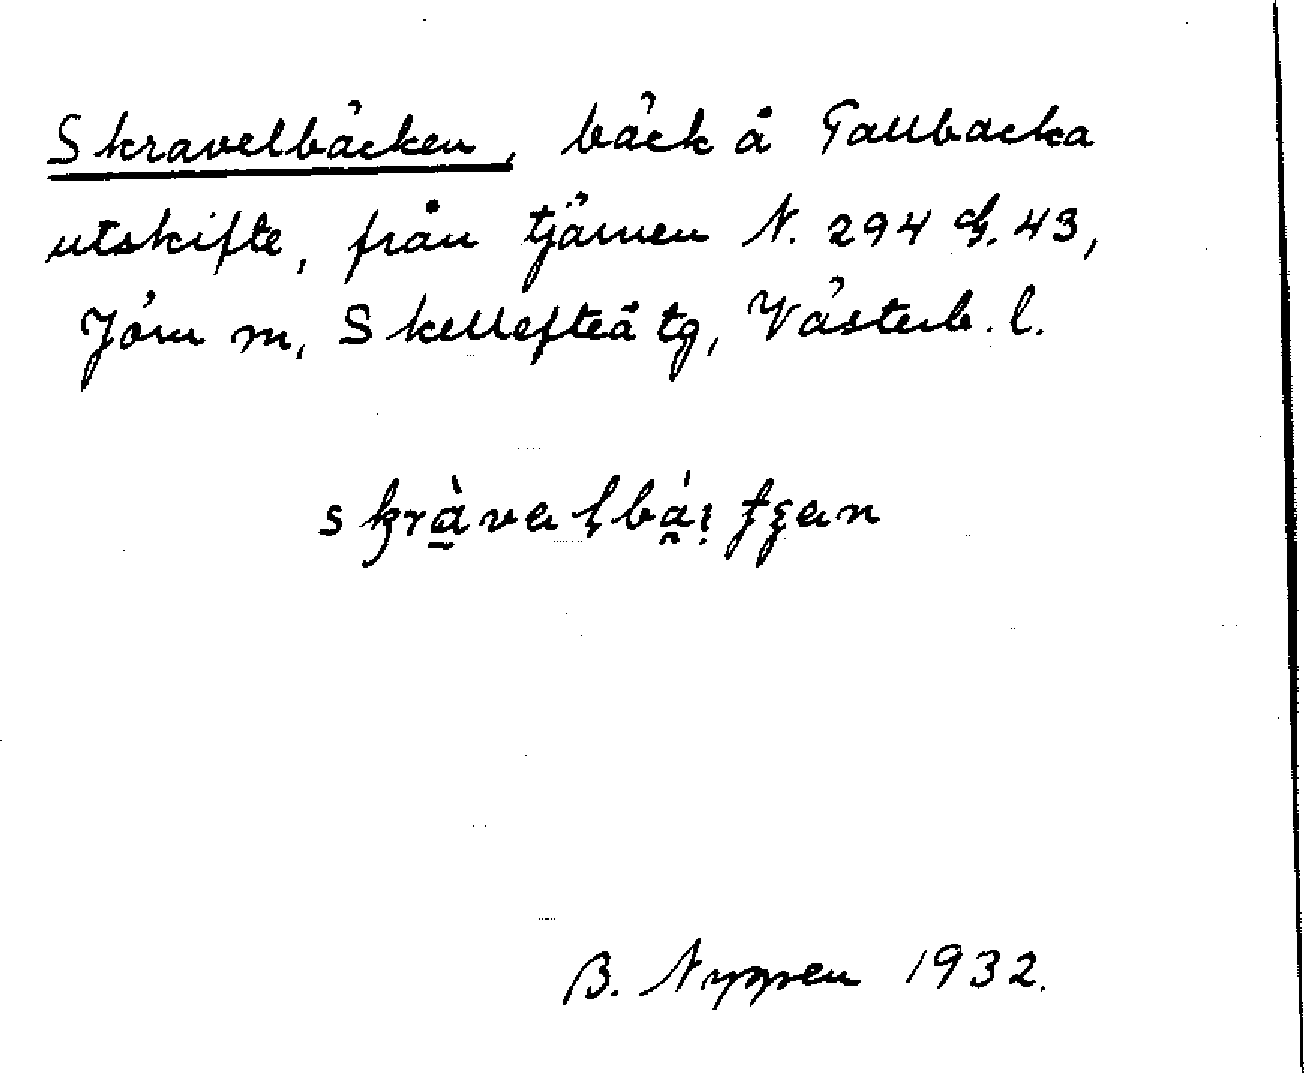 Skravelbäcken, bäck å Tallbacka
utskifte, från tjärnen N. 294 & 43,
Jörn sn, Skellefteå tg, Västerb. l.
skràvalbáitşan
B. Nyppen 1932.